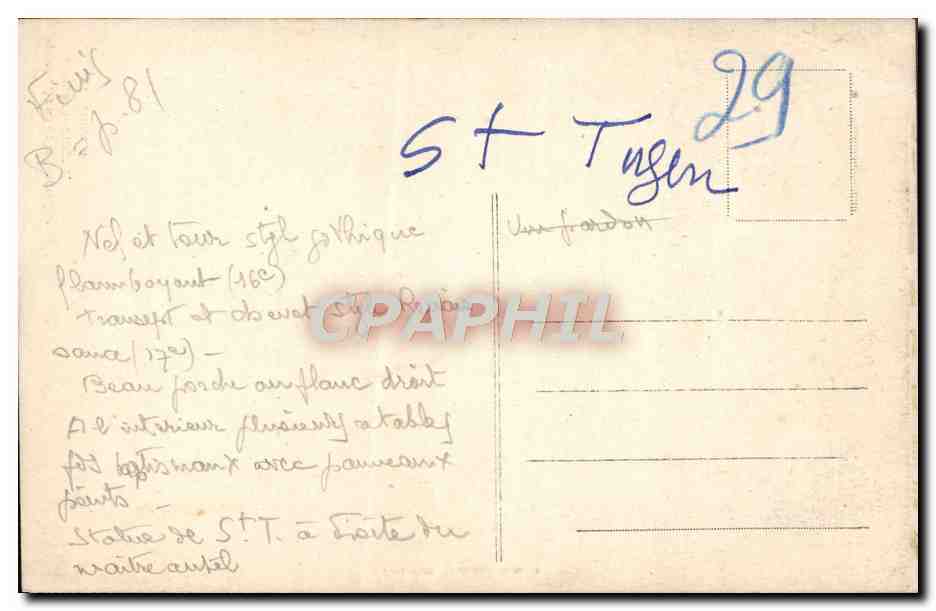 Finis
B. = p. 81
29
St Tugen
Nef et tour styl gothique
flamboyant (16e)
transept et chevet style Renais
sance (17e) –
Beau porche au flanc droit
A l'interieur plusieurs retables
fts baptismaux avec panneaux
peints –
Statue de St. T. à droite du
maitre autel
CPAPHIL